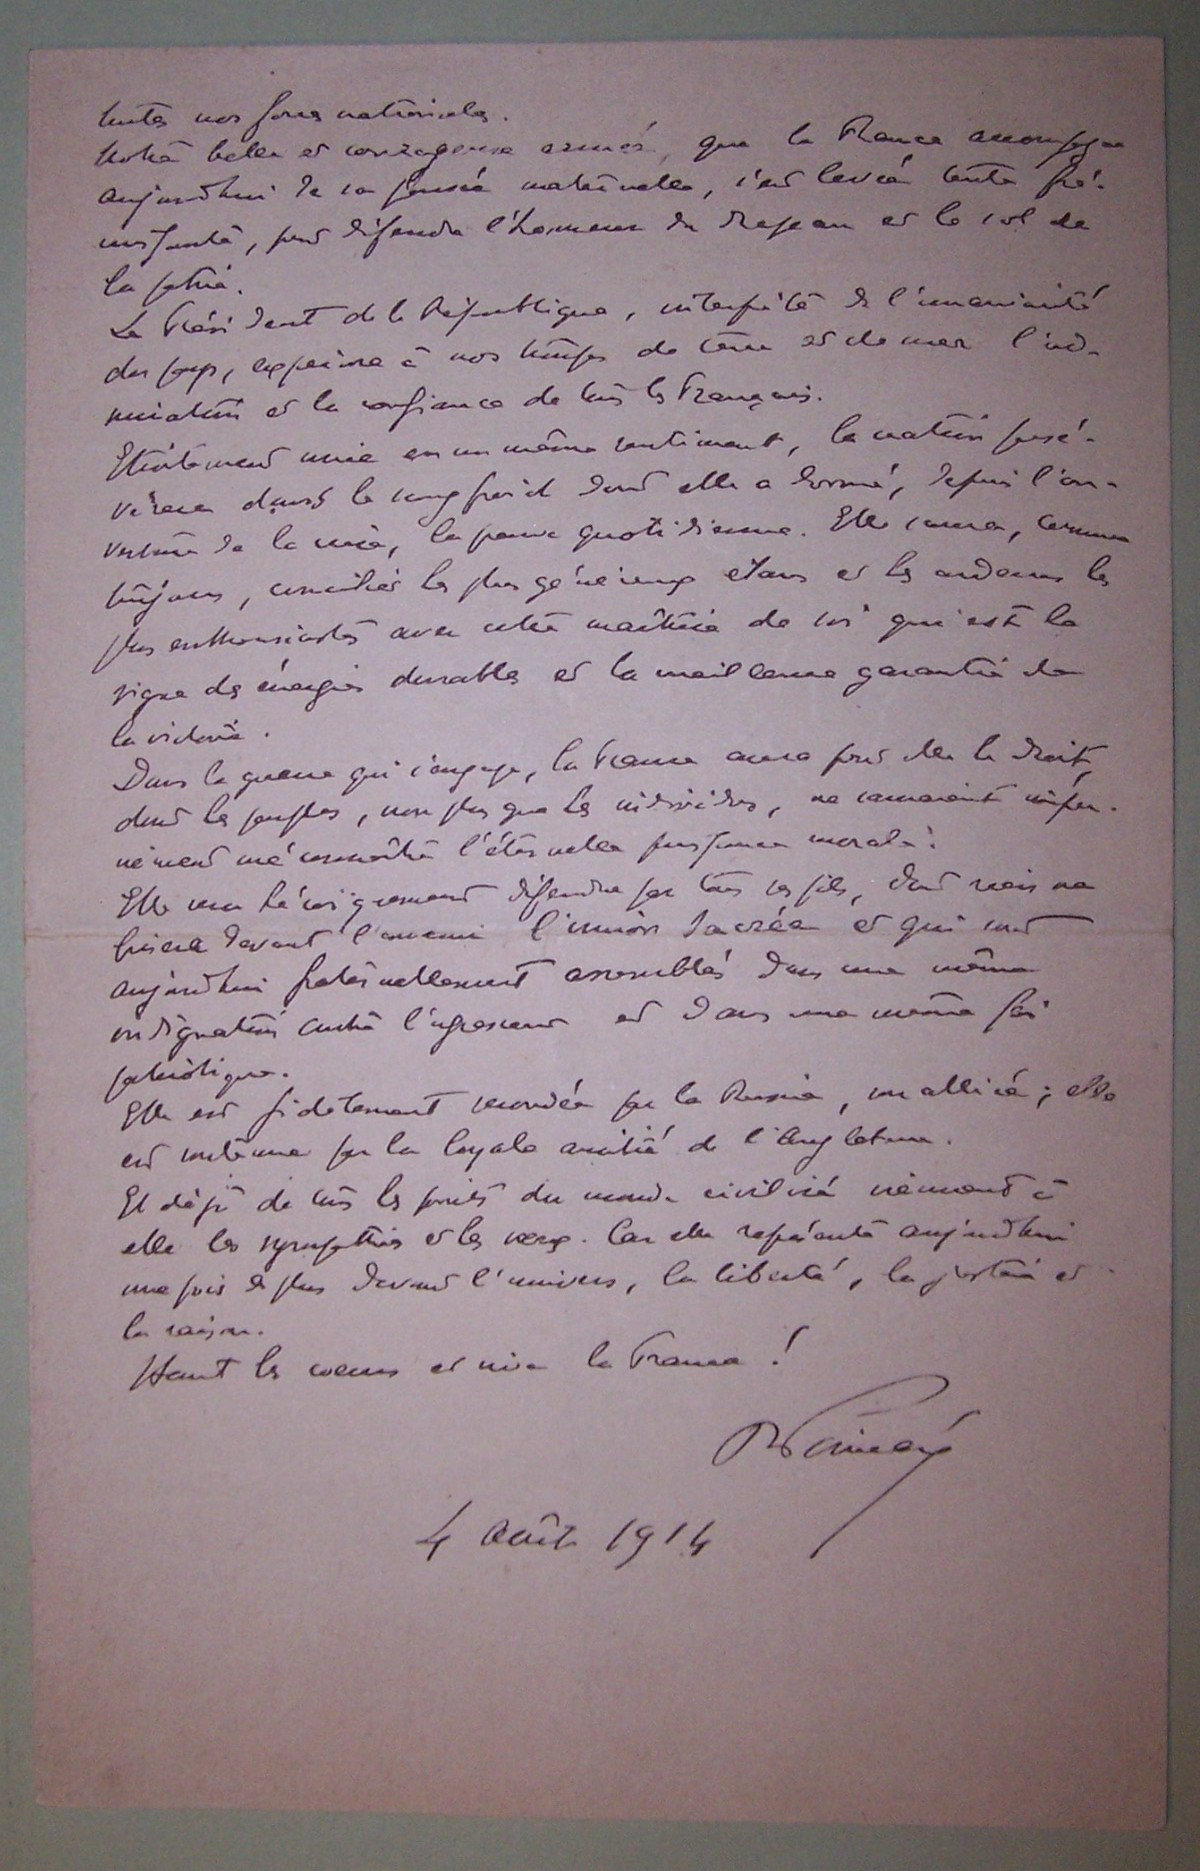 toutes nos forces nationales.
Notre belle et courageuse armée, que la France accompagne
aujourd'hui de sa pensée maternelle, s'est levée toute fré-
missante, pour défendre l'honneur du drapeau et le sol de
la patrie.
Le Président de la République, interprète de l'unanimité
du pays, exprime à nos troupes de terre et de mer l'ad-
miration et la confiance de tous les Français.
Etroitement unie en un même sentiment, la nation persé-
vèrera dans le sang froid dont elle a donné, depuis l'ou-
verture de la crise, la preuve quotidienne. Elle saura, comme
toujours, concilier les plus généreux élans et les ardeurs les
plus enthousiastes avec cette maîtrise de soi qui est le
signe des énergies durables et la meilleure garantie de
la victoire.
Dans la guerre qui s'engage, la France aura pour elle le droit,
dont les peuples, non plus que les individus, ne sauraient impu-
nément méconnaître l'éternelle puissance morale.
Elle sera héroïquement défendue par tous ses fils, dont rien ne
brisera devant l'ennemi l'union sacrée et qui sont
aujourd'hui fraternellement assemblés dans une même
indignation contre l'agresseur et dans une même foi
patriotique.
Elle est fidèlement secondée par la Russie, son alliée; elle
est soutenue par la loyale amitié de l'Angleterre.
Et déjà de tous les points du monde civilisé viennent à
elle les sympathies et les vœux. Car elle représente aujourd'hui
une fois de plus devant l'univers, la liberté, la justice et
la raison.
Haut les coeurs et vive la France!
R Poincaré
4 août 1914